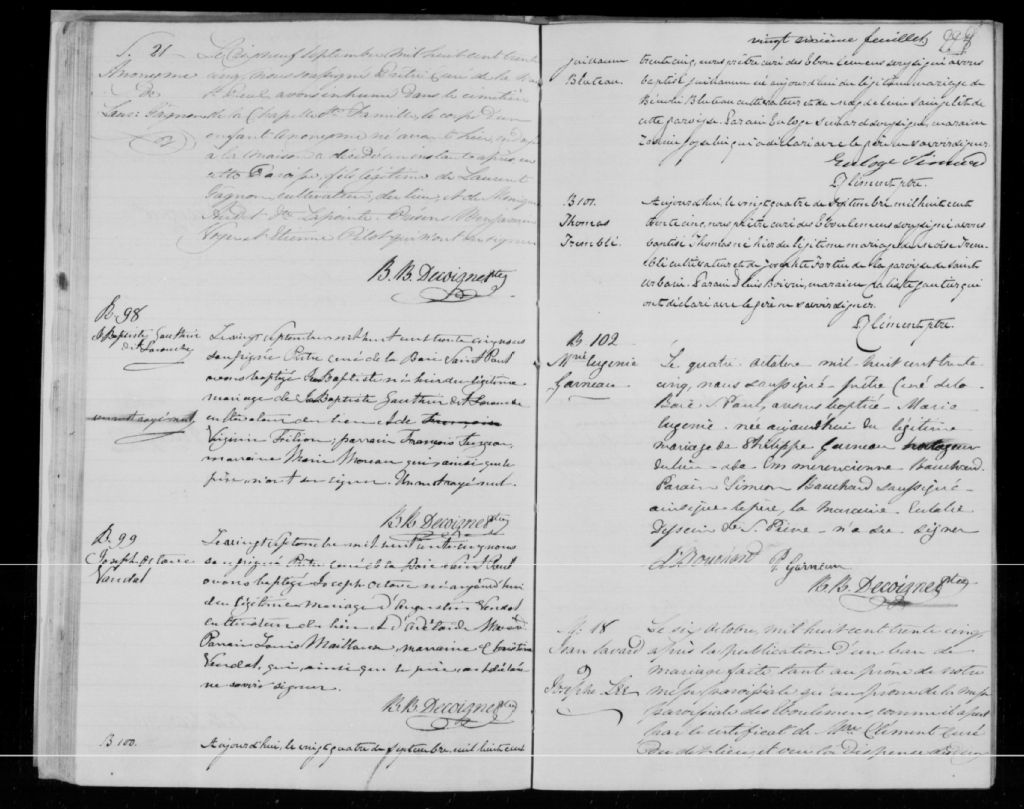 S. 21
Anonyme
De
Laur: Gagnon
Le dix neuf Septembre mil huit cent trente
cinq, nous soussigné Prêtre Curé de la Baie
St. Paul avons inhumé dans le cimetière
de la Chapelle Ste. Famille le corps d'un
enfant anonyme né avant hier, ondoyé
à la maison & décédé un instant après en
cette Paroisse, fils légitime de Laurent
Gagnon, cultivateur, du lieu, & de Monique
Audet dte Lapointe. Présens Benjamin
et Etienne Pilot qui n'ont su signer
B. B. Decoigne Ptre
B. 98
J. Baptiste Gauthier
dit Larouche
un mot rayé nul
Le vingt Septembre mil huit cent trente cinq nous
soussigné Prêtre curé de la Baie Saint Paul
avons baptizé Jn Baptiste né hier du légitime
mariage de Jn Baptiste Gauthier dit Larouche
cultivateur du lieu et de François
Virginie Filion; parrain François
marraine Marie Moreau qui, ainsi que le
père, n'ont su signer. Un mot rayé nul.
B. B. Decoigne Ptre
B. 99
Joseph Octave
Vandal
Le vingt Septembre mil huit cent trente cinq nous
soussigné Prêtre curé de la Baie Saint Paul
avons baptizé Joseph Octave né aujourd'hui
du légitime mariage d'Augustin Vandal
cultivateur du lieu et d'Adélaïde
Parrain Louis Mailloux, marraine Christine
Vandal, qui, ainsi que le père, ont déclaré
ne savoir signer.
B. B. Decoigne Ptre
B 100.
Aujourd'hui, le vingt quatre de septembre, mil huit cent
vingt sixième feuillet
Juidaum
Bluteau.
trente cinq, nous prêtre curé des Eboulemens soussigné avons
baptisé Juidaume né aujourd'hui du légitime mariage de
Bénoni Bluteau cultivateur et de Magdeleine
cette paroisse. Parain Euloge Simard soussigné, maraine
qui a déclaré avec le père ne savoir signer.
Euloge Simard
Clément ptre.
B 101.
Thomas
Tremblé.
Aujourd'hui, le vingt quatre de septembre mil huit cent
trente cinq, nous prêtre curé des Eboulemens soussigné avons
baptisé Thomas né hier du légitime mariage de Moïse Trem-
blé cultivateur et de Josephte Fortin de la paroisse de Saint
Urbain. Parain Louis Boivin, maraine Calixte Gautier qui
ont déclaré avec le père ne savoir signer.
Clément ptre.
B 102
Mrie Eugenie
Garneau
Le quatre octobre mil huit cent trente
cinq, nous soussigné Prêtre Curé de la
Baie St Paul, avons baptisé Marie
Eugenie née aujourd'hui du légitime
mariage de Philippe Garneau
du lieu & de Emmerencienne Bouchard.
Parain Simeon Bouchard soussigné
ainsi que le père, la maraine Eulalie
n'a su signer
S. Bouchard P. Garneau
B. B. Decoigne Ptre
M: 18
Jean Savard
&
Josephe Lée
Le six octobre, mil huit cent trente cinq,
après la publication d'un ban de
mariage faite tant au prône de notre
messe paroissiale qu'au prône de la messe
paroissiale des Eboulemens, comme il appert
par le certificat de Mre Clément Curé
du dit lieu, et vu la dispense de deux